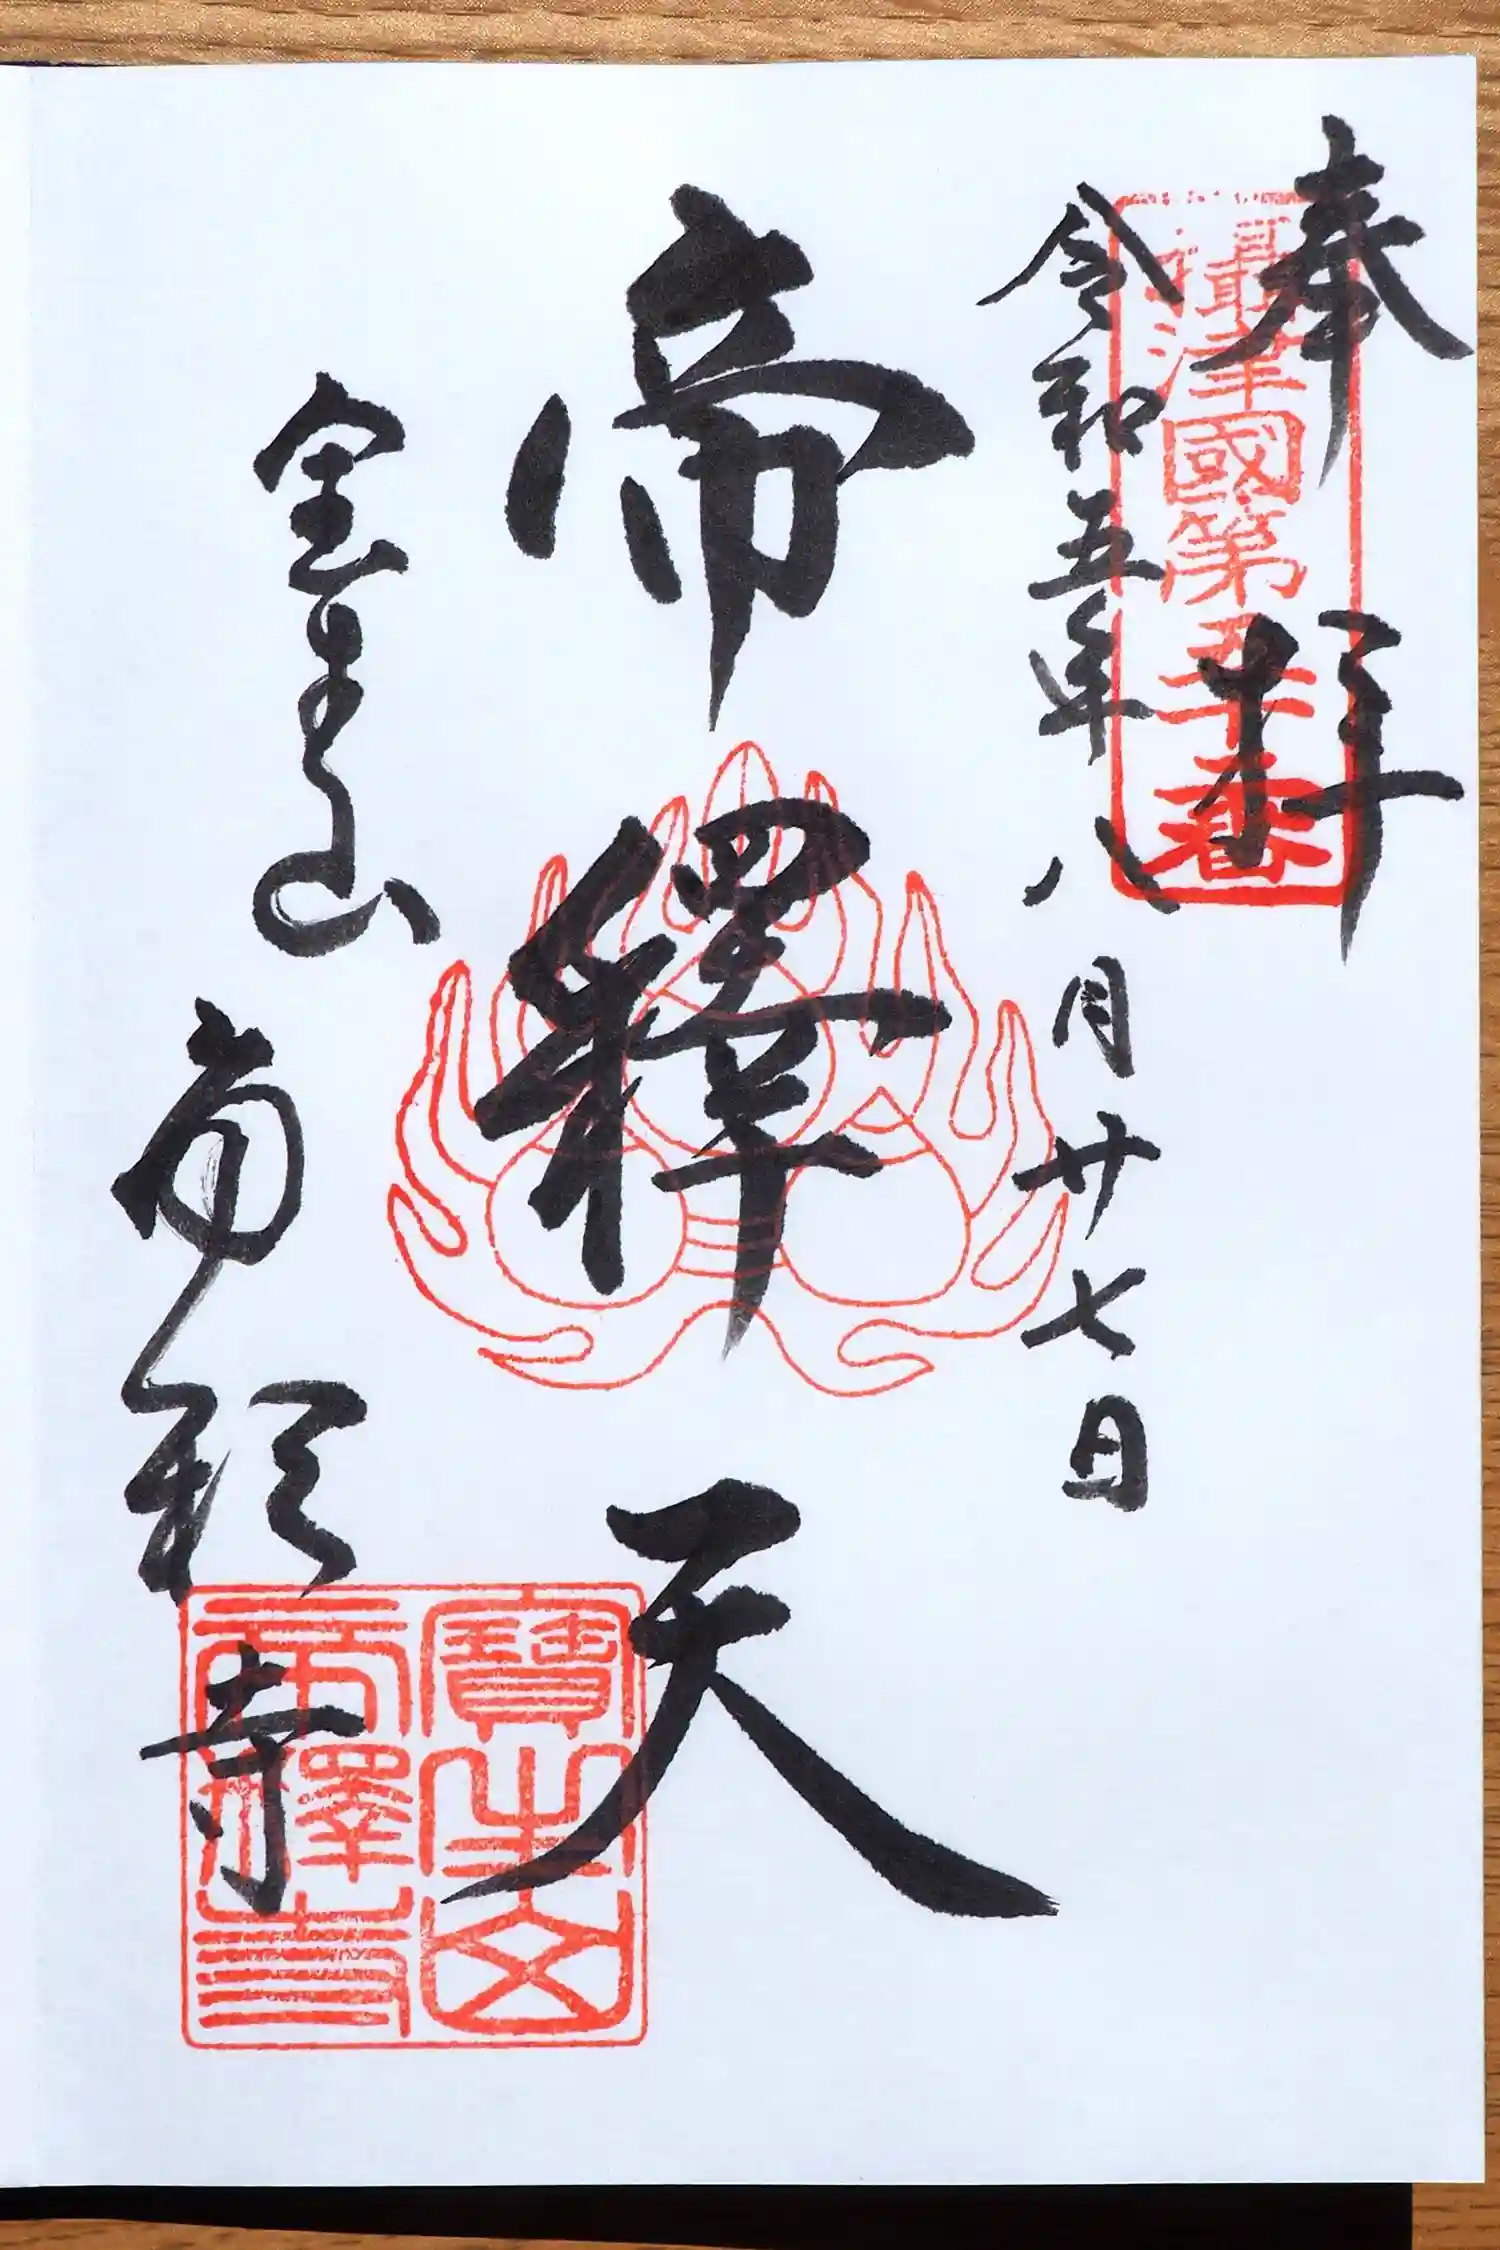 奉拝
攝津國第五十番
令和五年八月廿七日
帝釋天
宝生山
帝釈寺
寶生山
帝釋寺